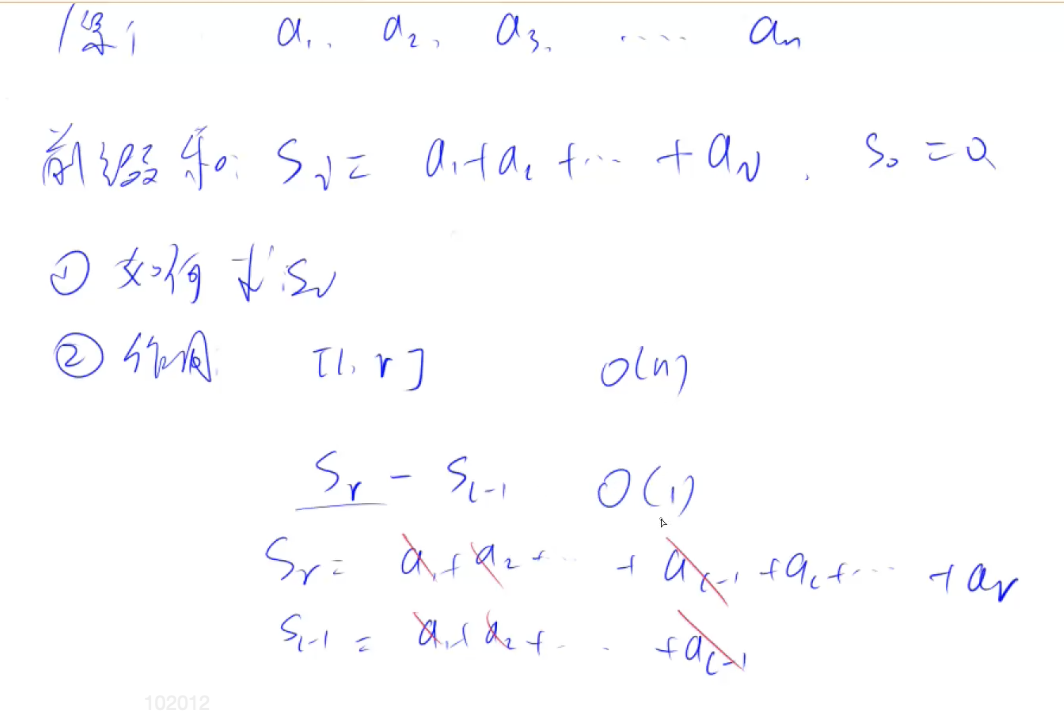 a₁, a₂, a₃, ..... aₙ
前缀和: Sᵢ = a₁+a₂+...+aᵢ. S₀=0
① 如何求Sᵢ
② 作用 [l, r] O(n)
Sᵣ - Sₗ₋₁ O(1)
Sᵣ = a₁+a₂+...+aₗ₋₁+aₗ+...+aᵣ
Sₗ₋₁ = a₁+a₂+...+aₗ₋₁
102012